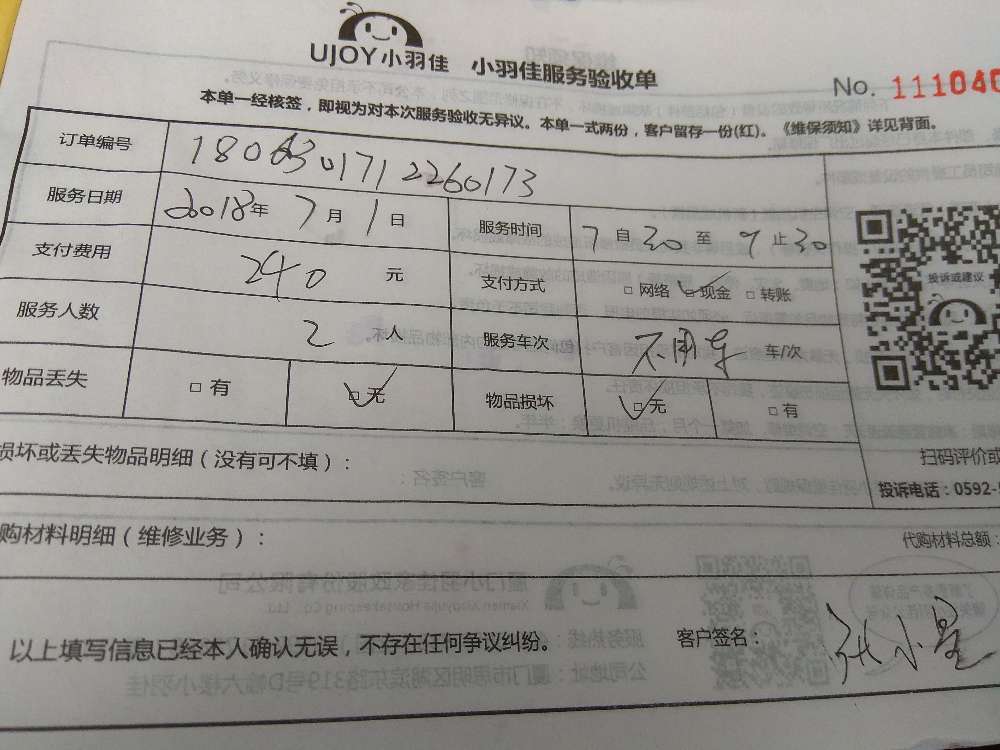 UJOY小羽佳 小羽佳服务验收单
No. 111040
本单一经核签，即视为对本次服务验收无异议。本单一式两份，客户留存一份(红)。《维保须知》详见背面。
订单编号 1806301712260173
服务日期 2018年 7月 1日 服务时间 7自30至9止30
支付费用 240 元 支付方式 □网络 □现金 □转账
服务人数 2 人 服务车次 不用车 车/次
物品丢失 □有 □无 物品损坏 □无 □有
投诉或建议
损坏或丢失物品明细（没有可不填）：
扫码评价或
投诉电话：0592-
购材料明细（维修业务）：
代购材料总额：
以上填写信息已经本人确认无误，不存在任何争议纠纷。 客户签名： 张小星